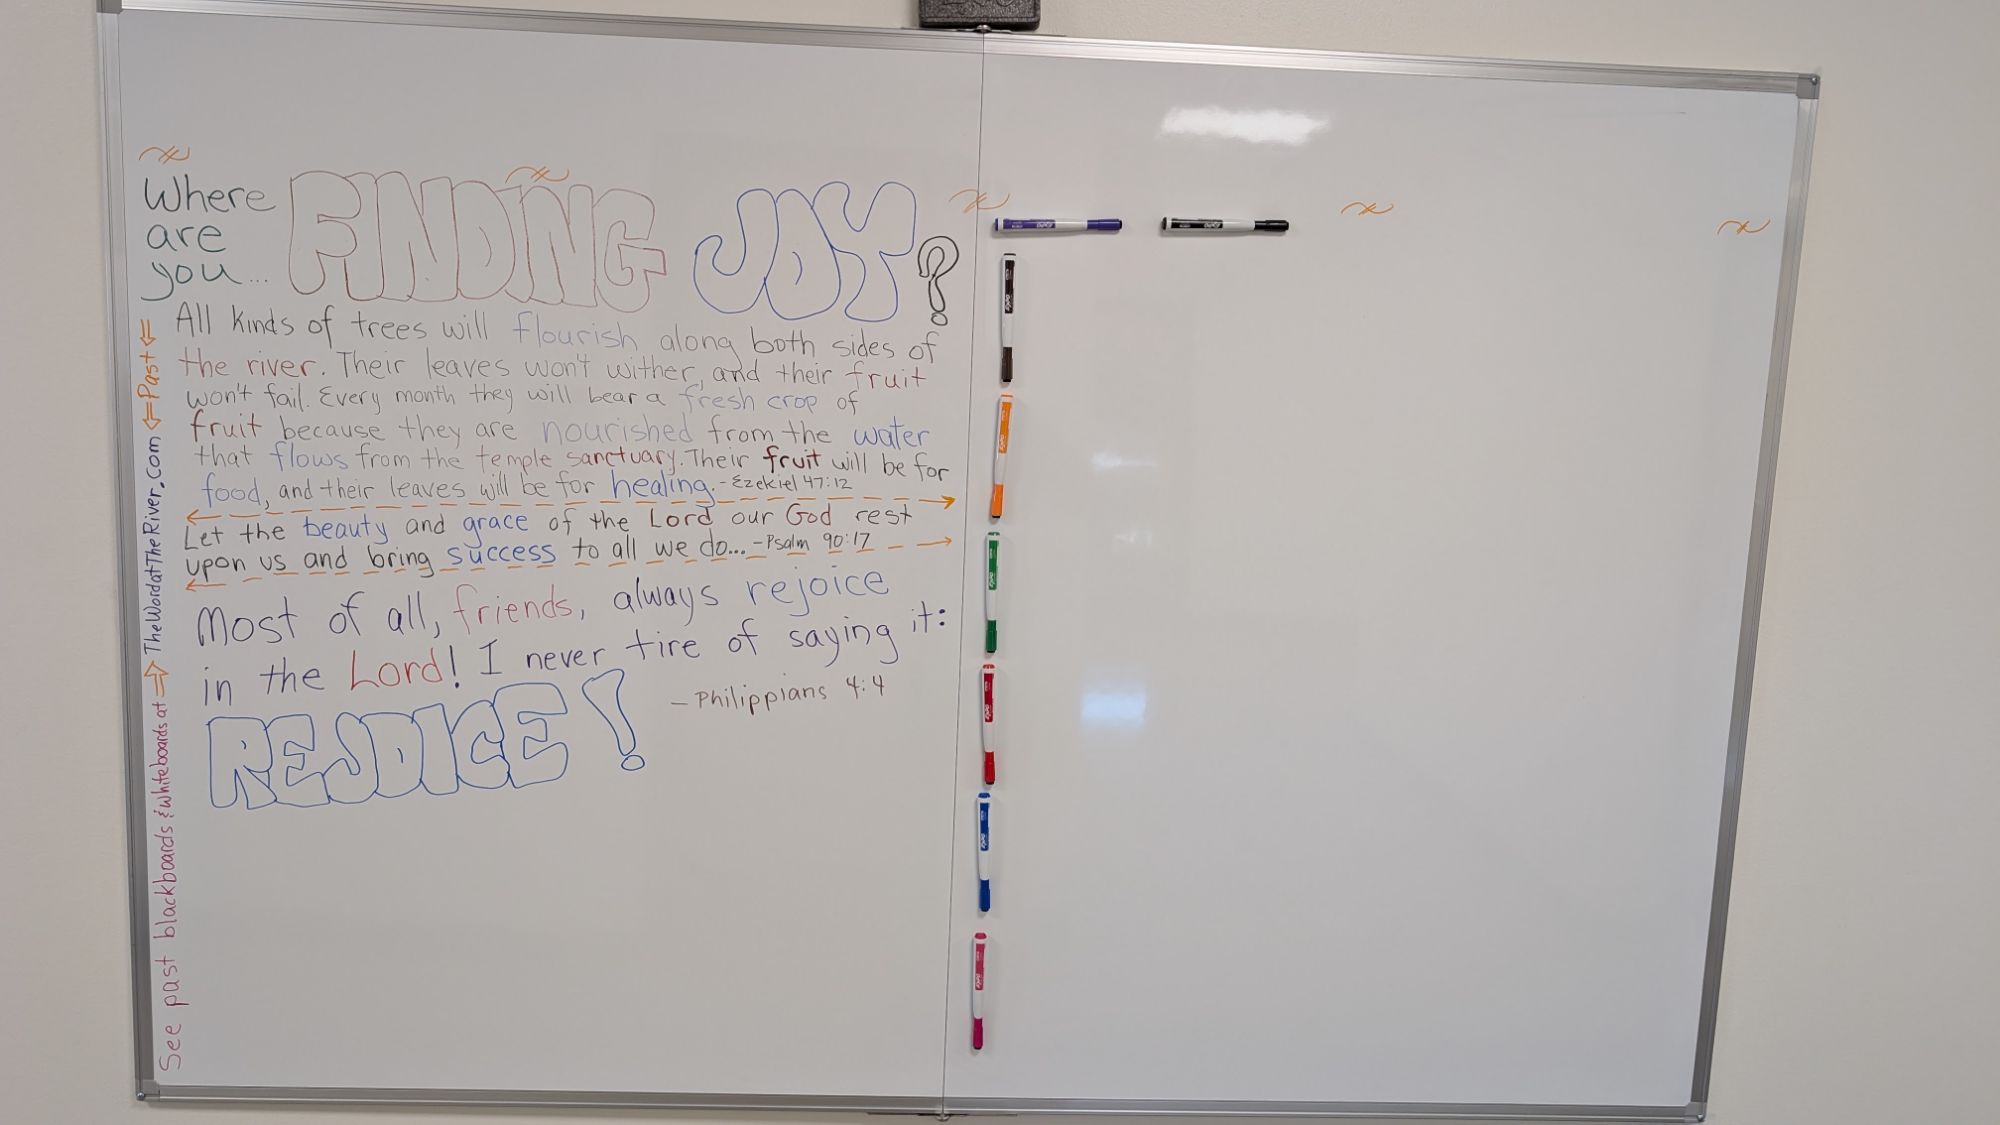 Where
are
you...
FINDING JOY?
All kinds of trees will flourish along both sides of
the river. Their leaves won't wither, and their fruit
won't fail. Every month they will bear a fresh crop of
fruit because they are nourished from the water
that flows from the temple sanctuary. Their fruit will be for
food, and their leaves will be for healing. - Ezekiel 47:12
Let the beauty and grace of the Lord our God rest
upon us and bring success to all we do... - Psalm 90:17
Most of all, friends, always rejoice
in the Lord! I never tire of saying it:
REJOICE!
- Philippians 4:4
See past blackboards & whiteboards at ⇒ TheWordatTheRiver.com ⇐ Past ⇐